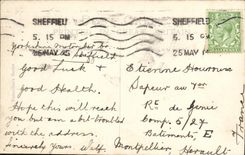 SHEFFIELD
5. 15 PM
25 MAY
SHEFFIELD
5. 15 PM
25 MAY
Yorkshire Motor
Sheffield
Good Luck &
Good Health.
Hope this will reach
you but am a bit troubled
with the address.
Sincerely Yours.
Etienne
Sapeur au 7me
Rt. de Genie
Comp. 5/24
Batiments, E
Montpellier,
Herault
France